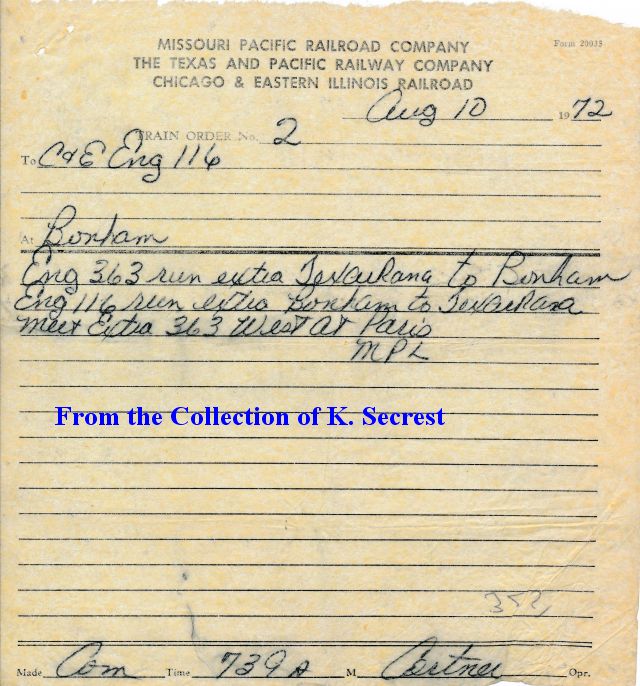 MISSOURI PACIFIC RAILROAD COMPANY
Form 20035
THE TEXAS AND PACIFIC RAILWAY COMPANY
CHICAGO & EASTERN ILLINOIS RAILROAD
Aug 10 1972
TRAIN ORDER No. 2
To C&E Eng 116
At Bonham
Eng 363 run extra Texarkana to Bonham
Eng 116 run extra Bonham to Texarkana
meet Extra 363 West at Paris
MPL
From the Collection of K. Secrest
352
Made Com Time 739 A M Cortner Opr.